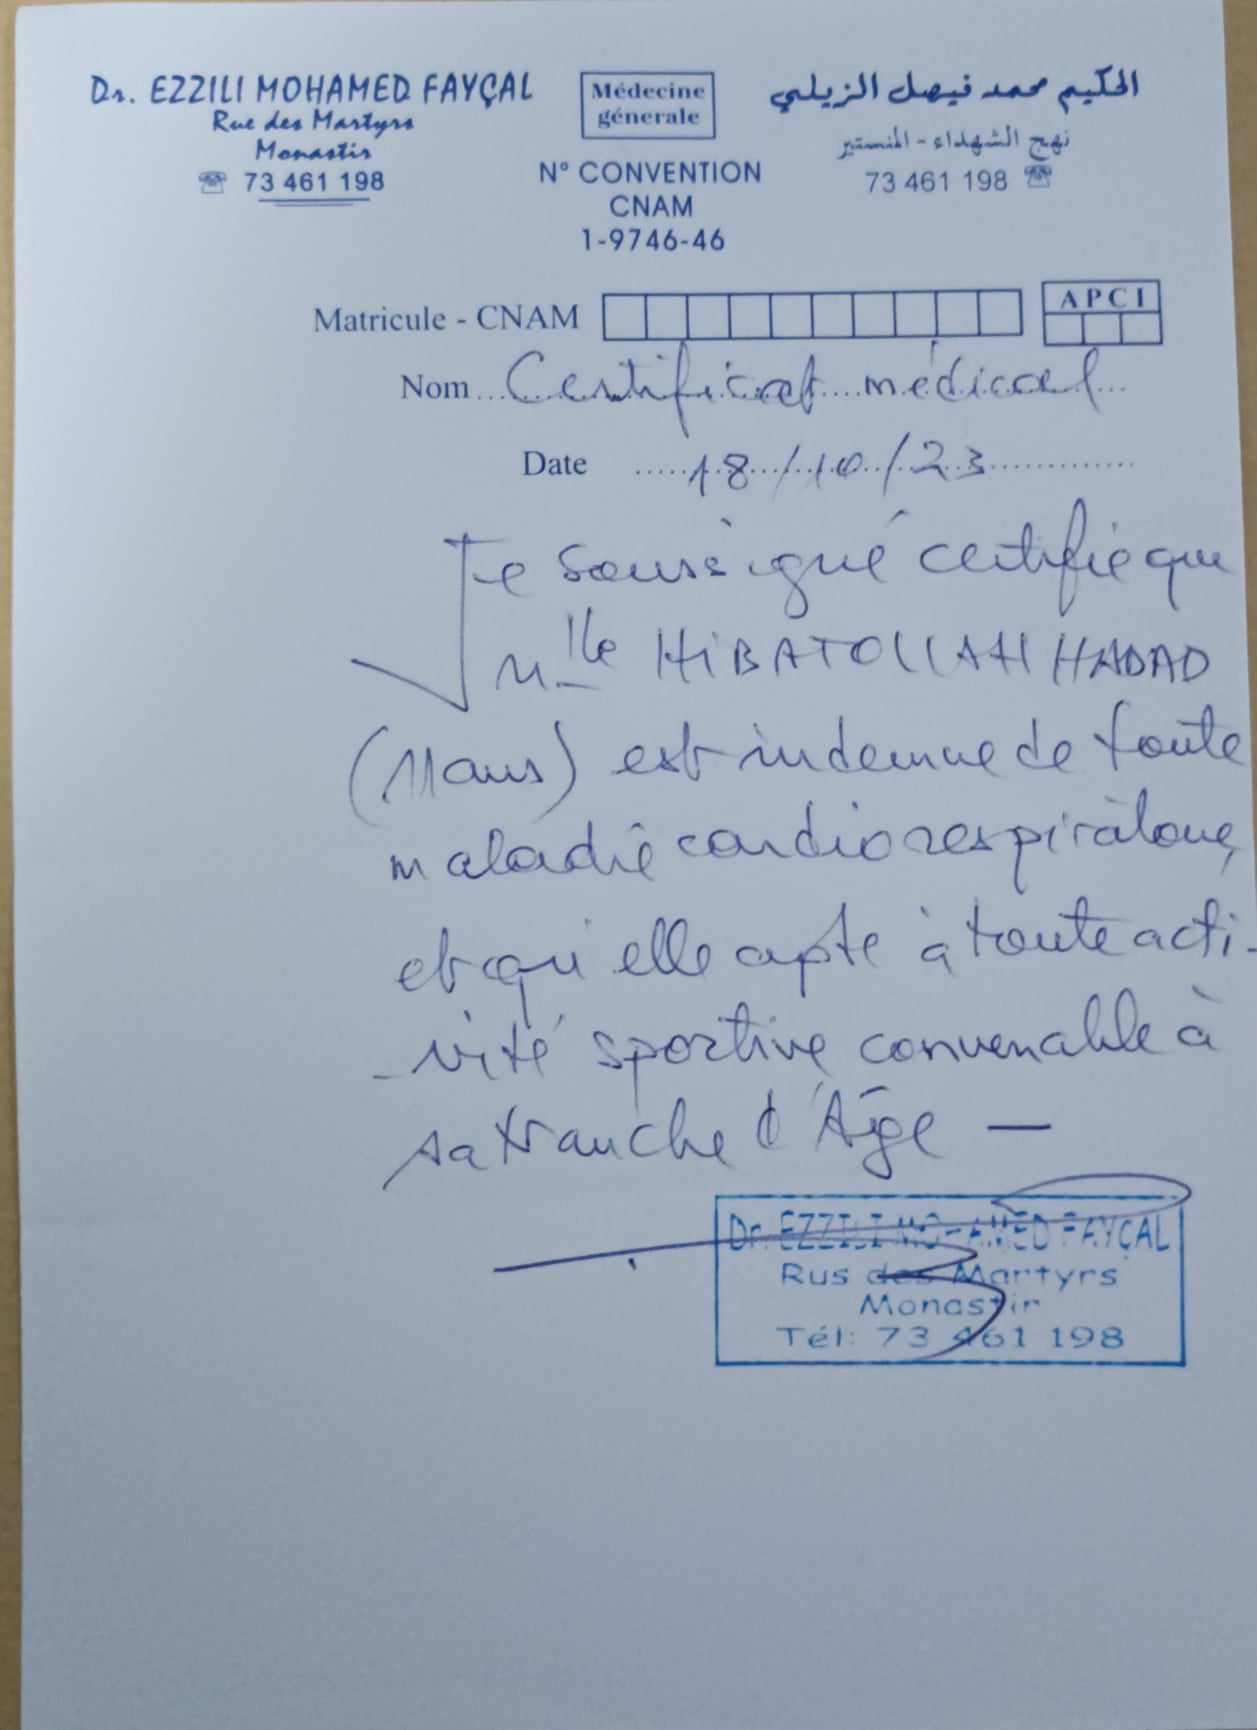 Dr. EZZILI MOHAMED FAYÇAL
Rue des Martyrs
Monastir
☏ 73 461 198
Médecine
génerale
N° CONVENTION
CNAM
1-9746-46
الحكيم محمد فيصل الزيلي
نهج الشهداء - المنستير
73 461 198 ☏
Matricule - CNAM
APCI
Nom Certificat médical
Date 18/10/23
Je soussigné certifie que
Mlle HIBATOLLAH HADAD
(11 ans) est indemne de toute
maladie cardiorespiratoire,
et qu'elle apte à toute acti-
-vité sportive convenable à
sa tranche d'Âge —
Dr. EZZILI MOHAMED FAYÇAL
Rus des Martyrs
Monastir
Tél: 73 461 198